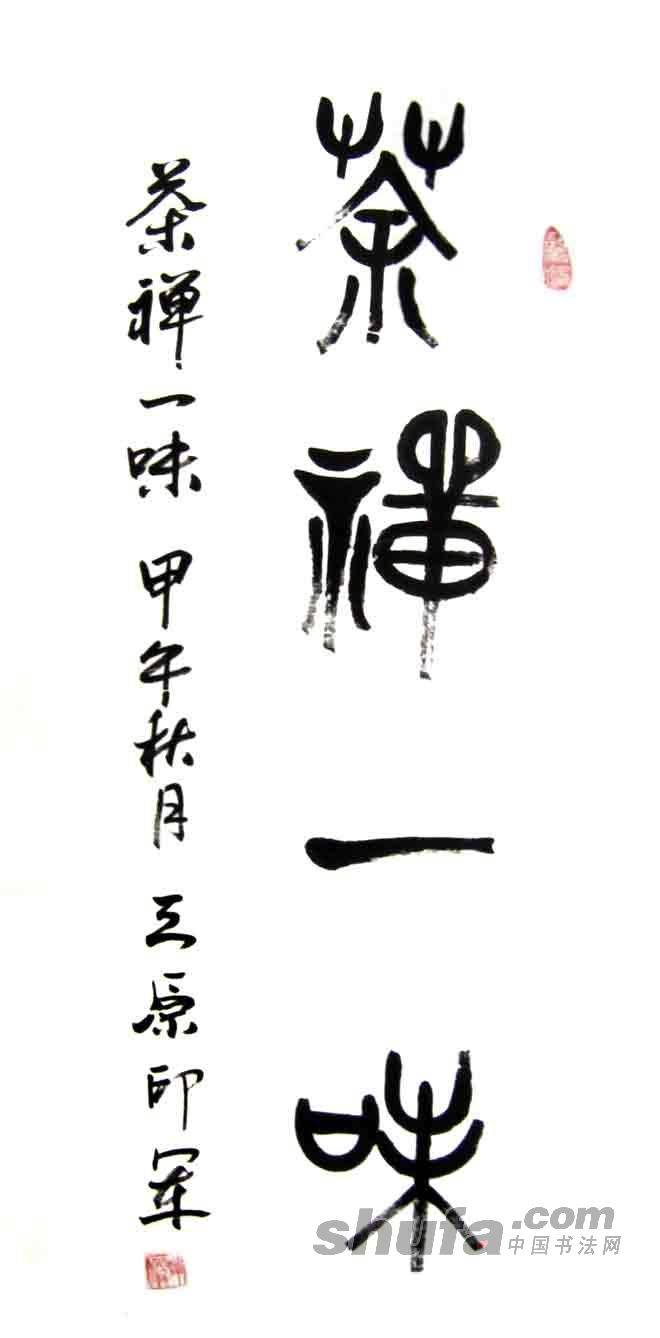 茶禅一味
茶禅一味 甲午秋月 三原印军
shufa.com
中国书法网